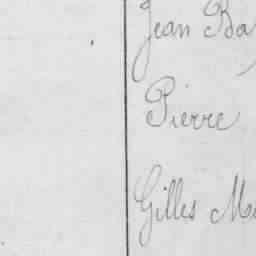 Jean Ba
Pierre
Gilles Ma